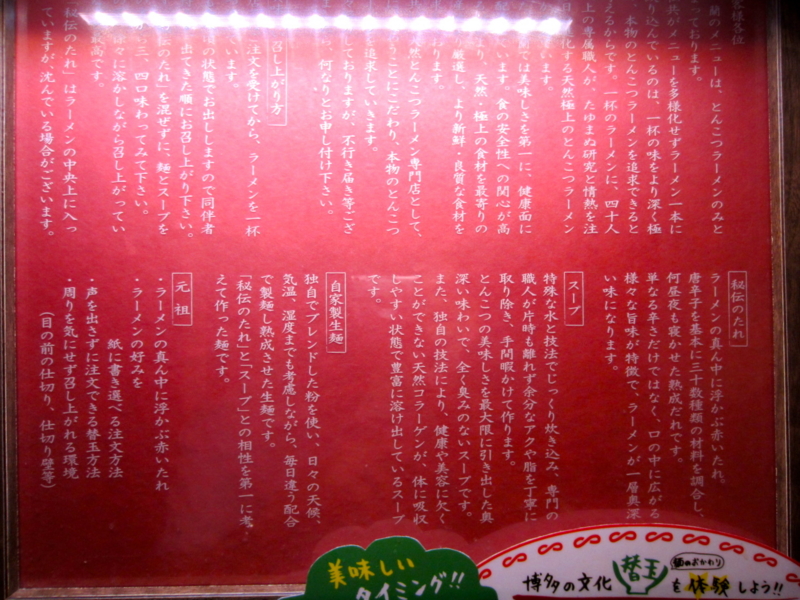 客様各位
蘭のメニューは、とんこつラーメンのみと
っております。
共がメニューを多様化せずラーメン一本に
り込んでいるのは、一杯の味をより深く極
、本物のとんこつラーメンを追求できると
えるからです。一杯のラーメンに、四十人
上の専属職人が、たゆまぬ研究と情熱を注
日々
化する天然極上のとんこつラーメン
います。
蘭では美味しさを第一に、健康面に
ています。食の安全性への関心が高
より、天然・極上の食材を最寄りの
厳選し、より新鮮、良質な食材を
おります。
天然とんこつラーメン専門店として、
うことにこだわり、本物のとんこつ
を追求していきます。
しておりますが、不行き届き等ござ
ら、何なりとお申し付け下さい。
召し上がり方
注文を受けてから、ラーメンを一杯
ています。
の状態でお出ししますので同伴者
出てきた順にお召し上がり下さい。
伝のたれ」を混ぜずに、麺とスープを
三、四口味わってみて下さい。
徐々に溶かしながら召し上がってい
最高です。
秘伝のたれ」はラーメンの中央上に入っ
ていますが、沈んでいる場合がございます。
秘伝のたれ
ラーメンの真ん中に浮かぶ赤いたれ。
唐辛子を基本に三十数種類の材料を調合し、
何昼夜も寝かせた熟成だれです。
単なる辛さだけではなく、口の中に広がる
様々な旨味が特徴で、ラーメンが一層奥深
い味になります。
スープ
特殊な水と技法でじっくり炊き込み、専門の
職人が片時も離れず余分なアクや脂を丁寧に
取り除き、手間暇かけて作ります。
とんこつの美味しさを最大限に引き出した奥
深い味わいで、全く臭みのないスープです。
また、独自の技法により、健康や美容に欠く
ことができない天然コラーゲンが、体に吸収
しやすい状態で豊富に溶け出しているスープ
です。
自家製生麺
独自でブレンドした粉を使い、日々の天候、
気温、湿度までも考慮しながら、毎日違う配合
で製麺し熟成させた生麺です。
「秘伝のたれ」と「スープ」との相性を第一に考
えて作った麺です。
元祖
・ラーメンの真ん中に浮かぶ赤いたれ
・ラーメンの好みを
紙に書き選べる注文方法
・声を出さずに注文できる替玉方法
・周りを気にせず召し上がれる環境
(目の前の仕切り、仕切り壁等)
美味しい
タイミング!!
博多の文化 替玉 麺のおかわり を体験しよう!!